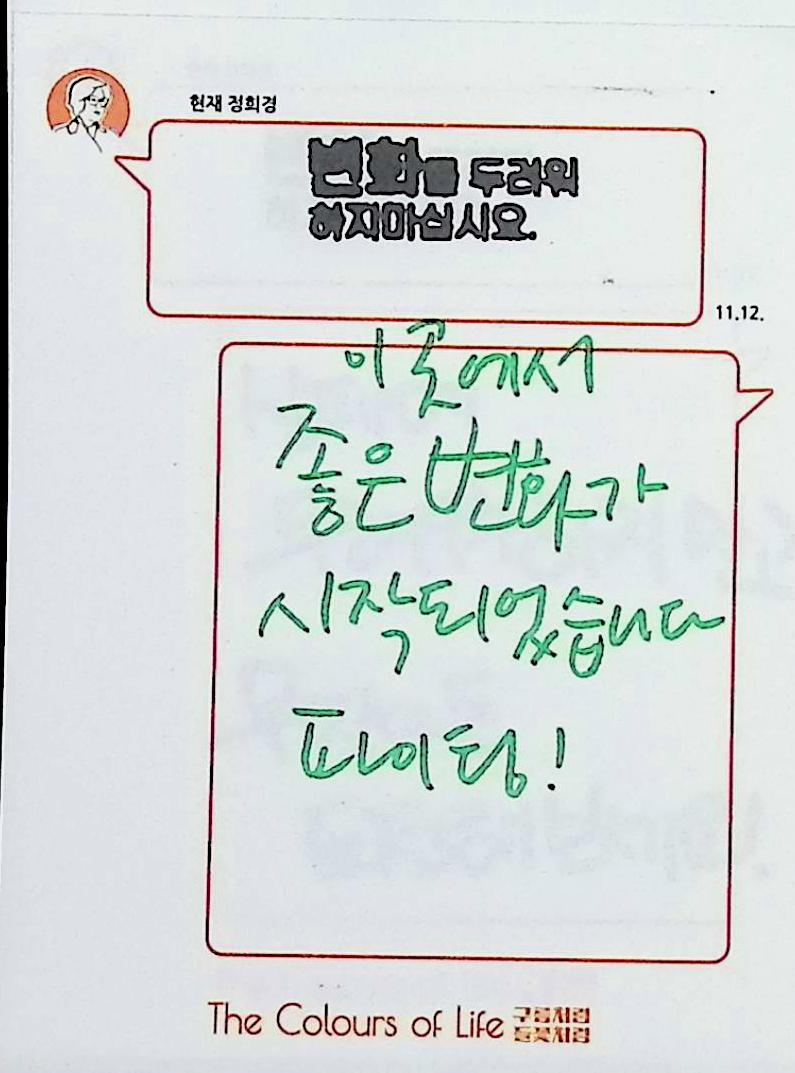 현재 정희경
변화를 두려워
하지마십시요.
11.12.
이곳에서
좋은 변화가
시작되었습니다
파이팅!
The Colours of Life 구름처럼
들꽃처럼